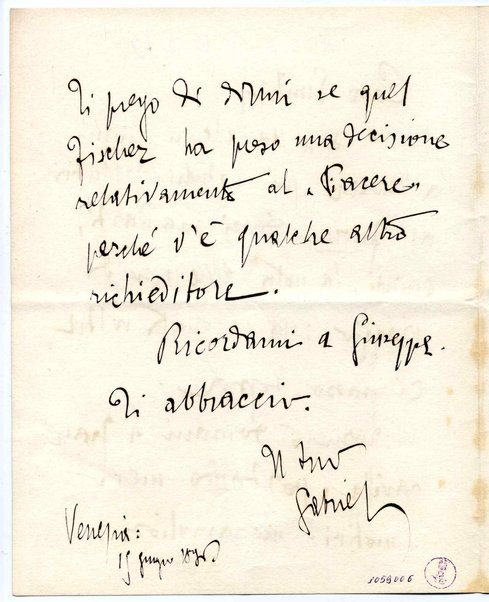 Ti prego di dirmi se quel
Fischer ha preso una decisione
relativamente al « Piacere »
perché v'è qualche altro
richieditore.
Ricordami a Giuseppe.
Ti abbraccio.
Il tuo
Gabriel
Venezia:
15 giugno
1059006